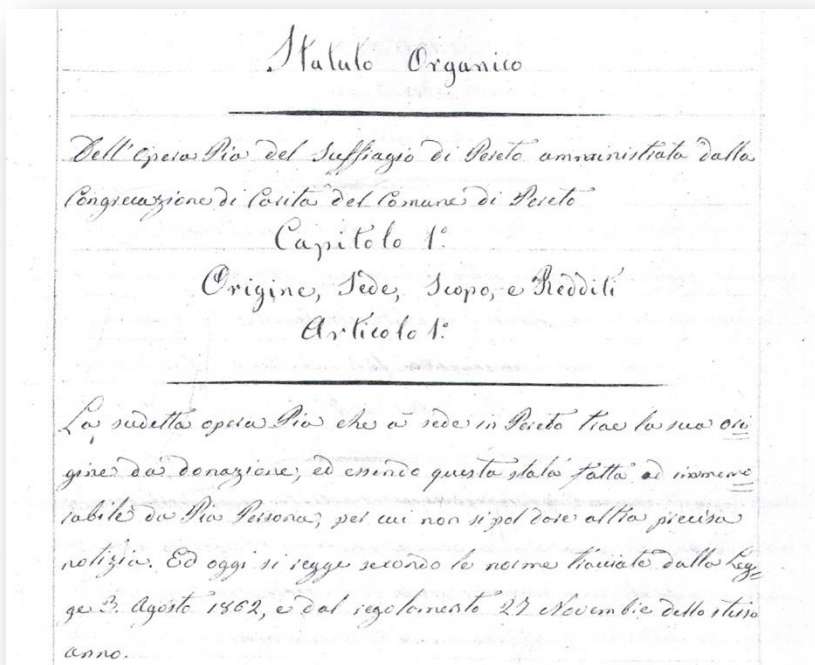 Statuto Organico
Dell'Opera Pia del Suffragio di Pereto amministrata dalla
Congregazione di Carità del Comune di Pereto
Capitolo 1.°
Origine, Sede, Scopo, e Redditi
Articolo 1.°
La sudetta opera Pia che à sede in Pereto trae la sua ori
gine da donazione, ed essendo questa stata fatta ad immemo
rabile da Pia Persona, per cui non si pol dare altra precisa
notizia. Ed oggi si regge secondo le norme tracciate dalla Leg
ge 3. Agosto 1862, e dal regolamento 27 Novembre dello stesso
anno.